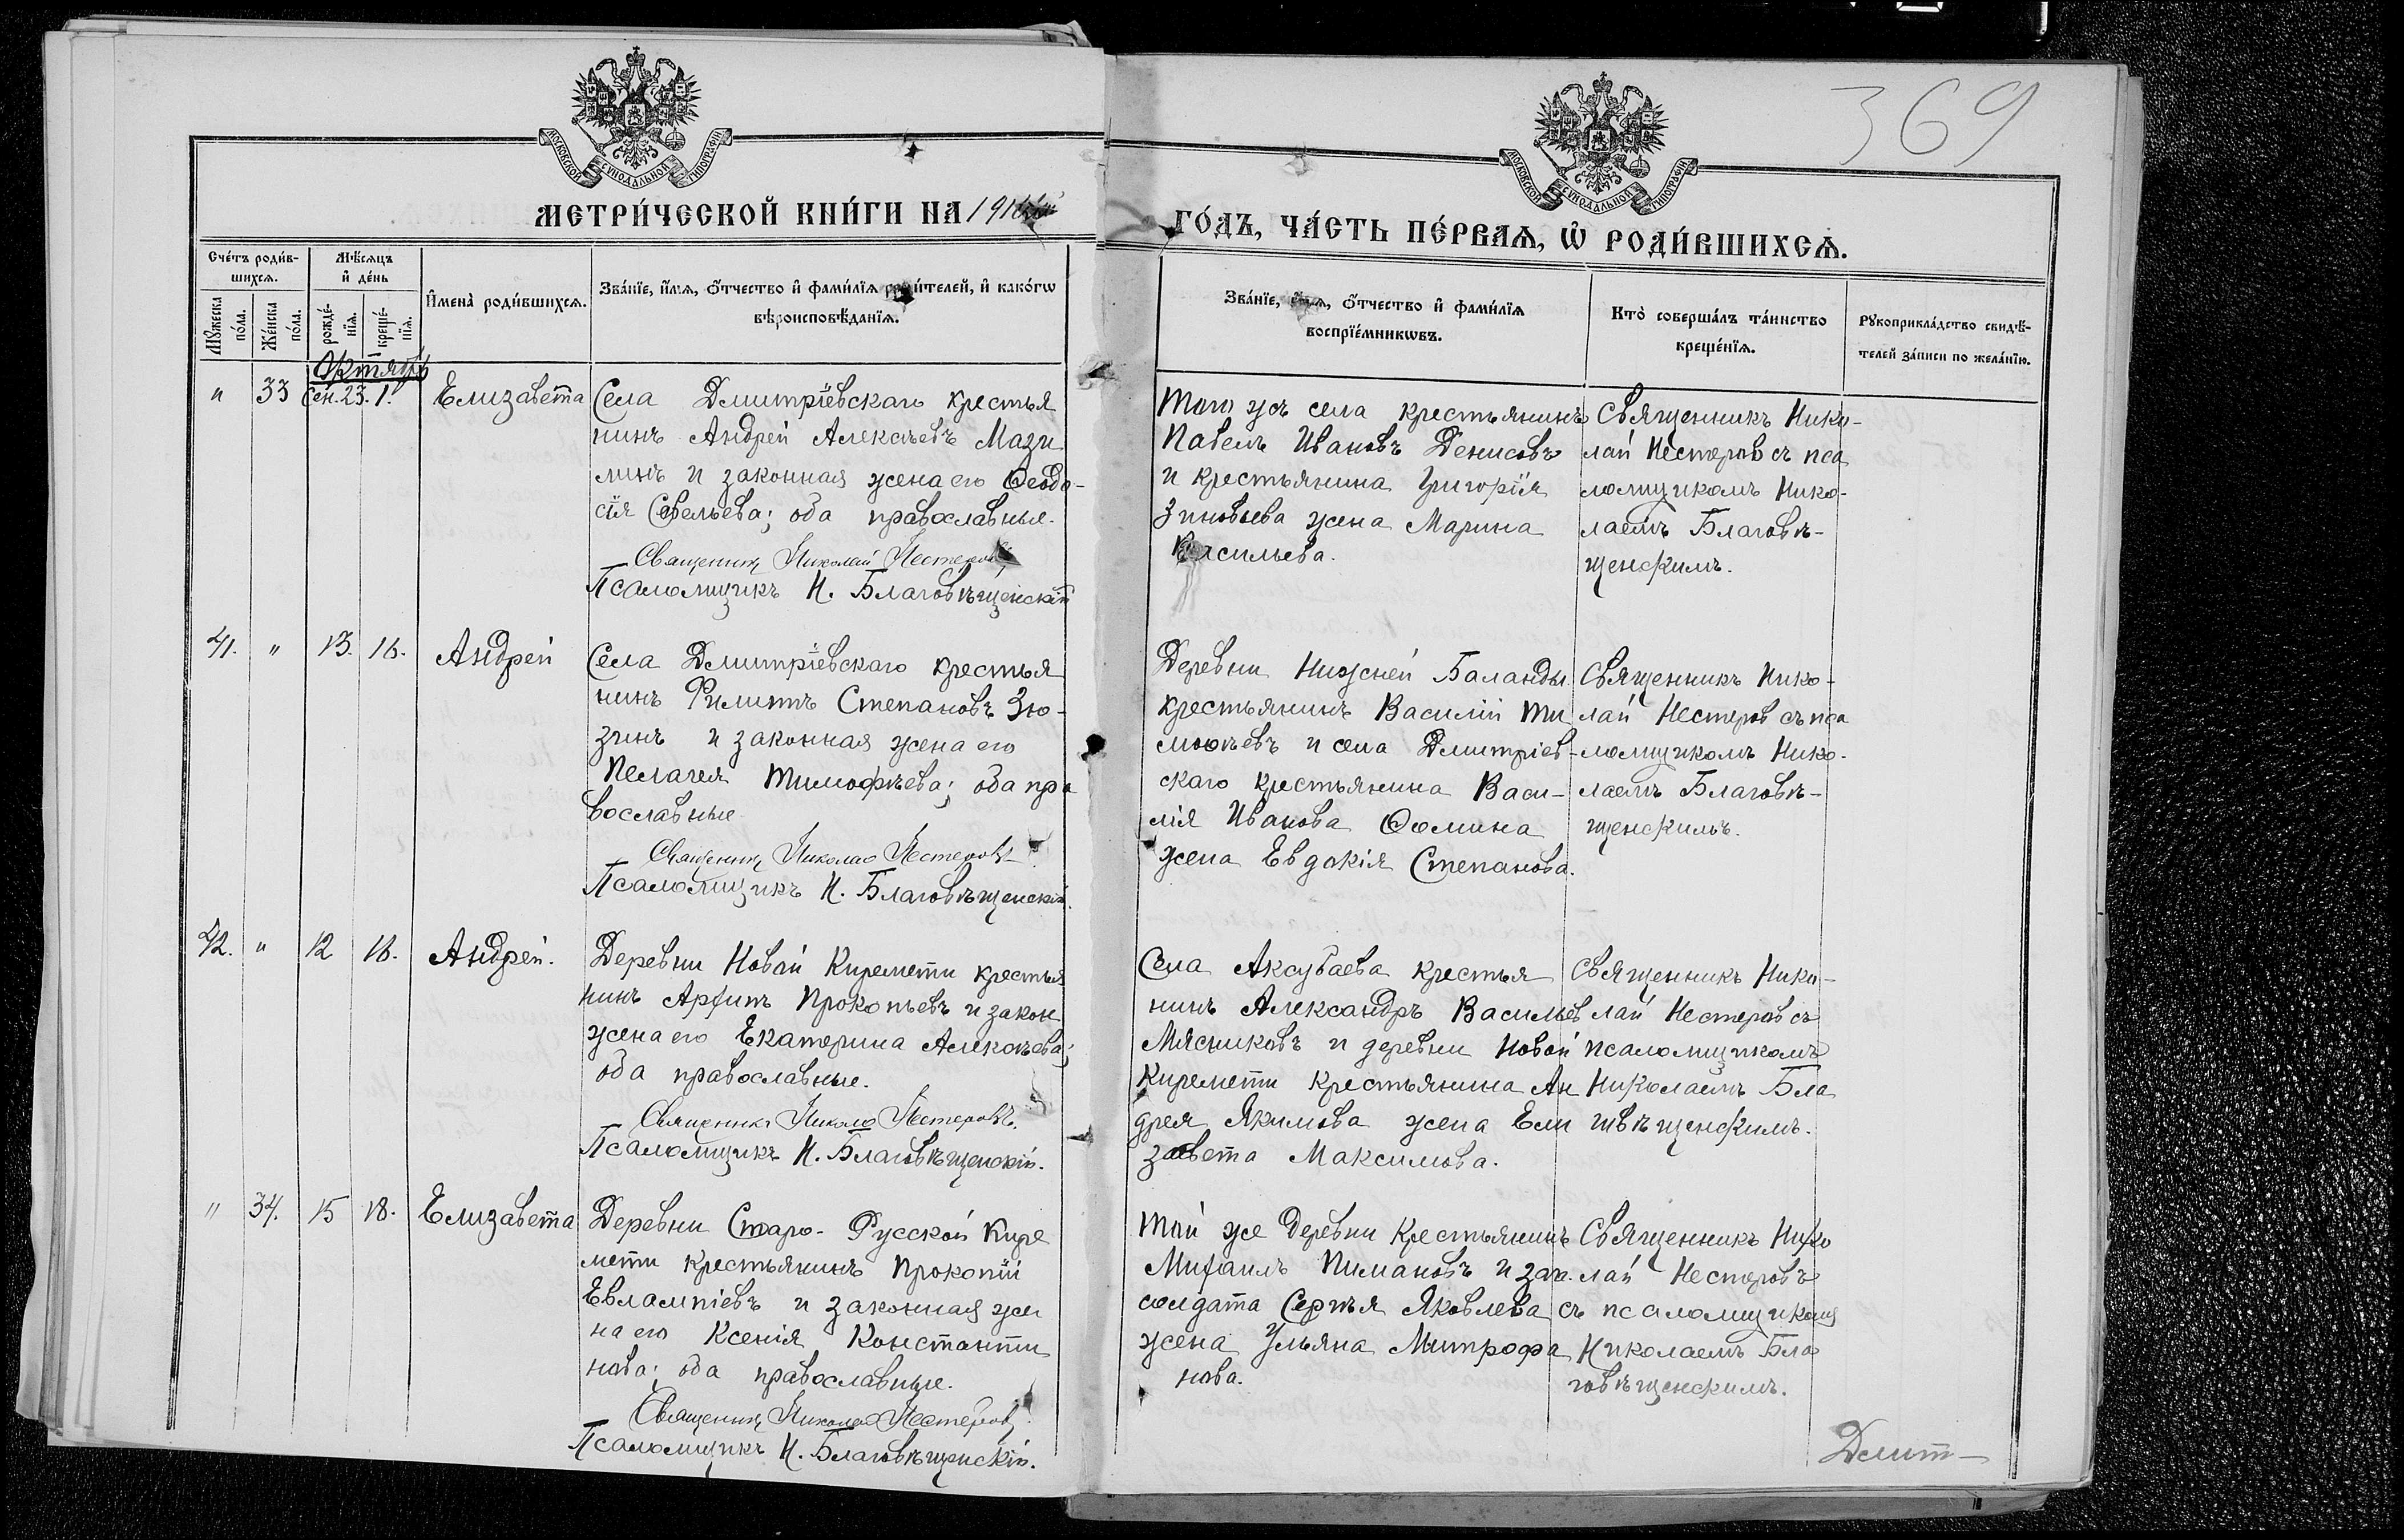 369
МОСКОВСКОЙ СУНОДАЛЬНОЙ ТИПОГРАФІИ
МОСКОВСКОЙ СУНОДАЛЬНОЙ ТИПОГРАФІИ
МЕТРИ́ЧЕСКОЙ КНИ́ГИ НА 191
ГО́ДЪ, ЧА́СТЬ ПЕ́РВАЯ, Ѡ҆ РОДИ́ВШИХСЯ.
Сче́тъ роди́в-
шихся.
Мѣ́сяцъ
и҆ де́нь
Мꙋжеска
по́ла.
Же́нска
по́ла.
рожде́-
нїя.
креще́-
нїя.
И҆мена̀ роди́вшихся.
Зва́нїе, и҆́мя, ѻ҆́тчество и҆ фами́лїя роди́телей, и҆ како́гѡ
вѣроисповѣ́данїя.
Зва́нїе, и҆́мя, ѻ҆́тчество и҆ фами́лїя
воспрїе́мникѡвъ.
Кто̀ соверша́лъ та́инство
креще́нїя.
Рꙋкоприкла́дство свидѣ́-
телей за́писи по жела́нїю.
Октябрь
" 33 Сен. 23. 1. Елизавета
Села Дмитріевскаго крестья
нинъ Андрей Алексѣевъ Мази
линъ и законная жена его Ѳеодо-
сія Савельева; оба православные.
Священникъ Николай Нестеровъ
Псаломщикъ Н. Благовѣщенскій
Того же села крестьянинъ
Павелъ Ивановъ Денисовъ
и крестьянина Григорія
Зиновьева жена Марина
Васильева.
Священникъ Нико-
лай Нестеровъ съ пса
ломщикомъ Нико-
лаемъ Благовѣ-
щенскимъ.
41. " 13. 16. Андрей
Села Дмитріевскаго крестья
нинъ Филиппъ Степановъ Зю-
зинъ и законная жена его
Пелагея Тимофѣева; оба пра
вославные
Священникъ Николай Нестеровъ
Псаломщикъ Н. Благовѣщенскій.
Деревни Нижней Баланды
крестьянинъ Василій Ти
моѳеевъ и села Дмитріев-
скаго крестьянина Васи-
лія Иванова Ѳомина
жена Евдокія Степанова.
Священникъ Нико-
лай Нестеровъ съ пса
ломщикомъ Нико-
лаемъ Благовѣ-
щенскимъ.
42. " 12 16. Андрей.
Деревни Новой Киремети крестья
нинъ Архипъ Прокопьевъ и закон
жена его Екатерина Алексѣева;
оба православные.
Священникъ Николай Нестеровъ.
Псаломщикъ Н. Благовѣщенскій.
Села Аксубаева крестья
нинъ Александръ Васильев
Мясниковъ и деревни Новой
Киремети крестьянина Ан
дрея Якимова жена Ели
завета Максимова.
Священникъ Нико-
лай Нестеровъ съ
псаломщикомъ
Николаемъ Бла
говѣщенскимъ.
" 34. 15 18. Елизавета
Деревни Старо-Русской Кире
мети крестьянинъ Прокопій
Евлампіевъ и законная же
на его Ксенія Константи
нова; оба православные.
Священникъ Николай Нестеровъ
Псаломщикъ Н. Благовѣщенскій.
Той же деревни крестьянинъ
Михаилъ Пимановъ и зап.
солдата Сергѣя Яковлева
жена Ульяна Митрофа
нова.
Священникъ Нико
лай Нестеровъ
съ псаломщикомъ
Николаемъ Бла
говѣщенскимъ.
Дмит-